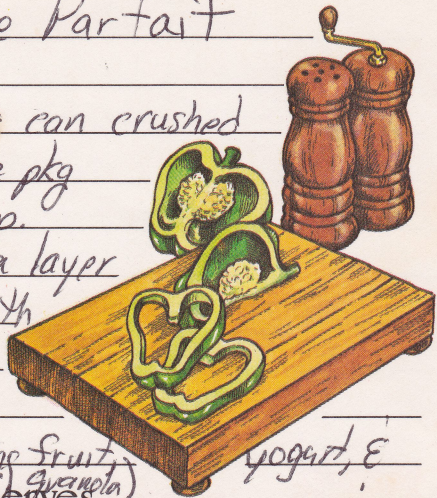 Parfait
can crushed
pkg
layer
fruit, yogurt, &
granola)